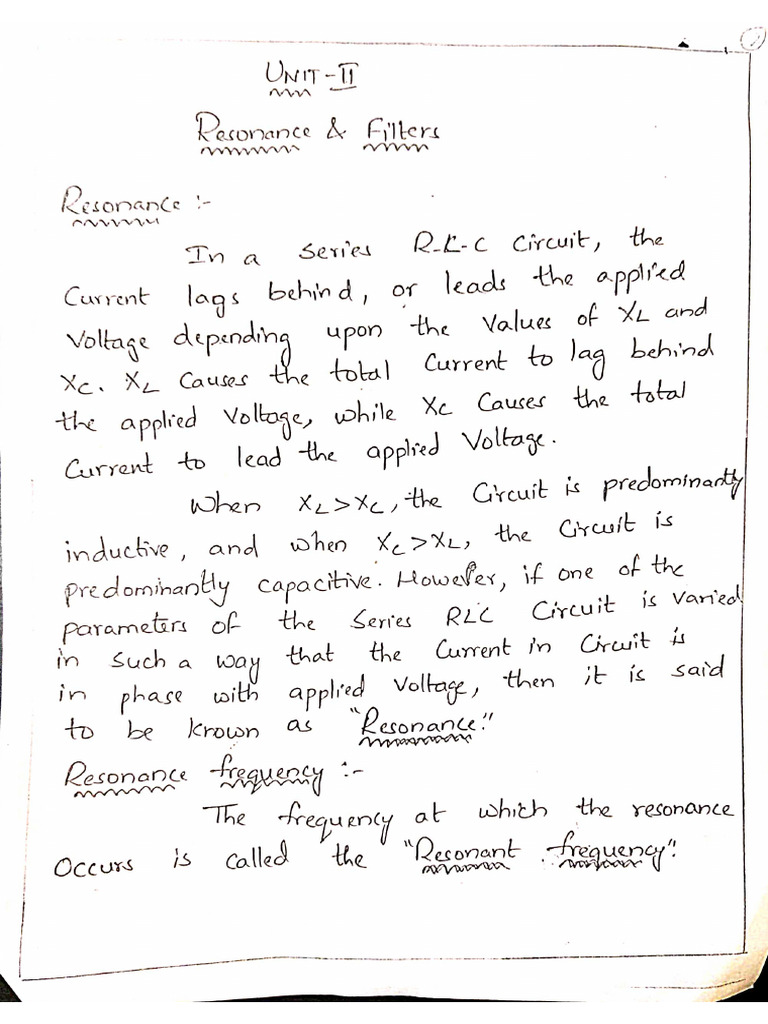 UNIT-II
Resonance & Filters
Resonance :-
In a series R-L-C Circuit, the
Current lags behind, or leads the applied
Voltage depending upon the Values of XL and
XC. XL Causes the total Current to lag behind
the applied Voltage, while XC Causes the total
Current to lead the applied Voltage.
When XL>XC, the Circuit is predominantly
inductive, and when XC>XL, the Circuit is
predominantly capacitive. However, if one of the
parameters of the Series RLC Circuit is varied
in such a way that the Current in Circuit is
in phase with applied Voltage, then it is said
to be known as "Resonance."
Resonance frequency :-
The frequency at which the resonance
Occurs is called the "Resonant frequency".